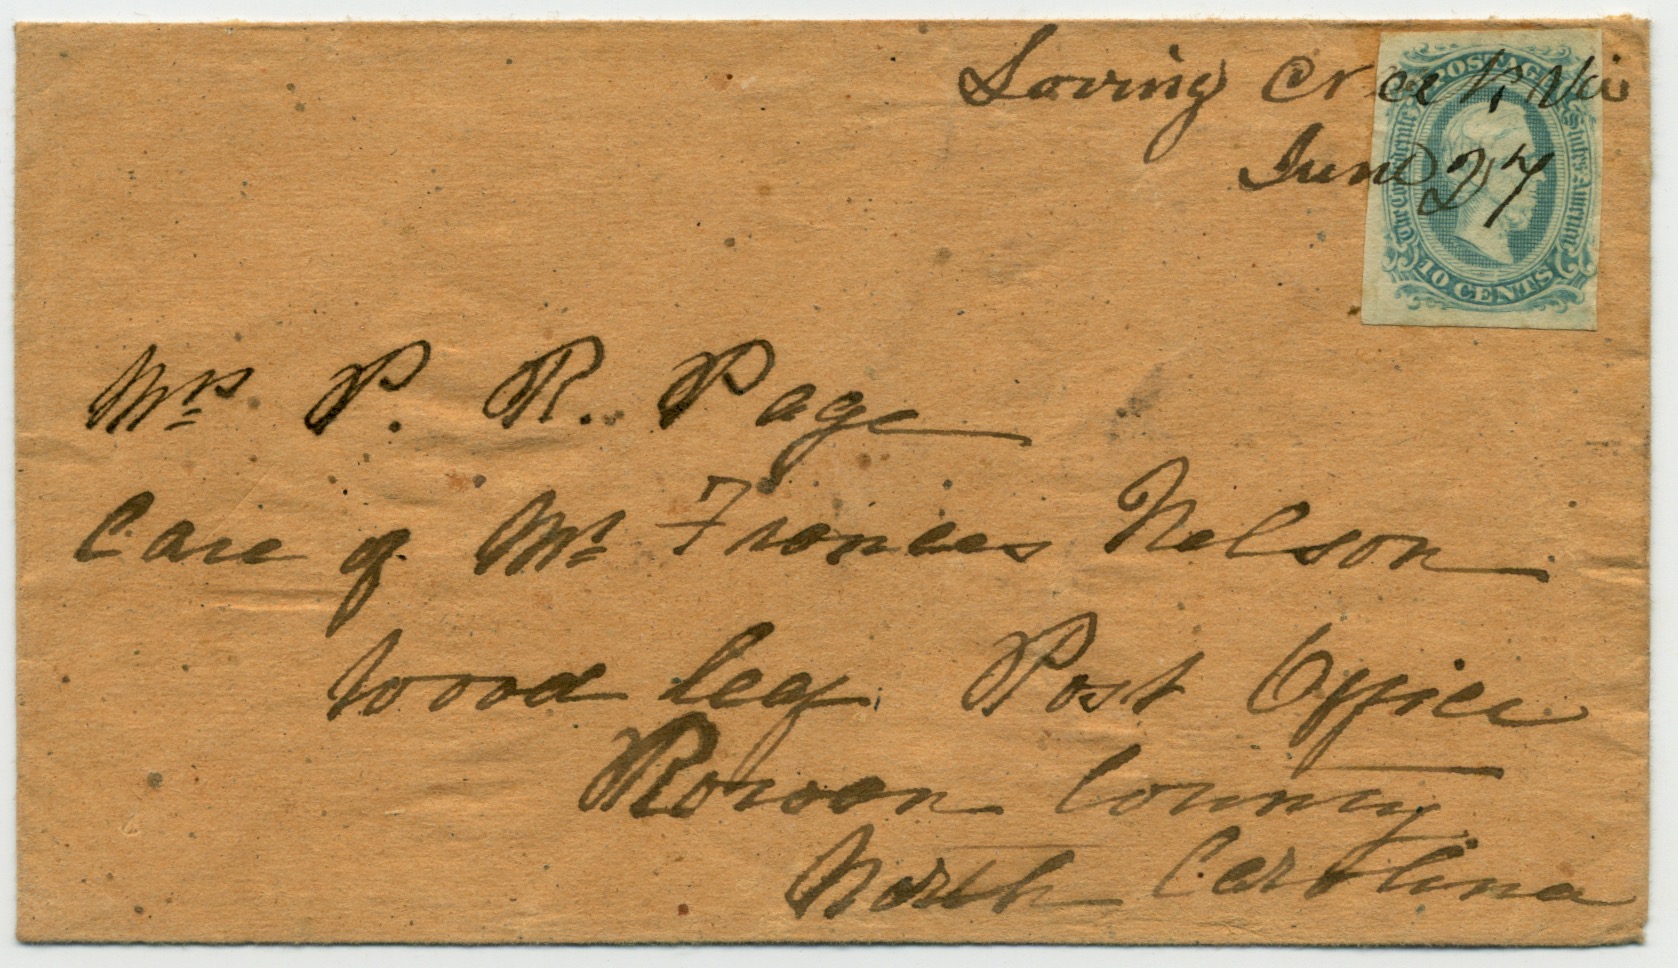 Loving Creek, Va
June 27
POSTAGE
The Confederate States of America
10 CENTS
Mrs P. R. Page
Care of Mr Frances Nelson
Wood leaf Post Office
Rowan County
North Carolina